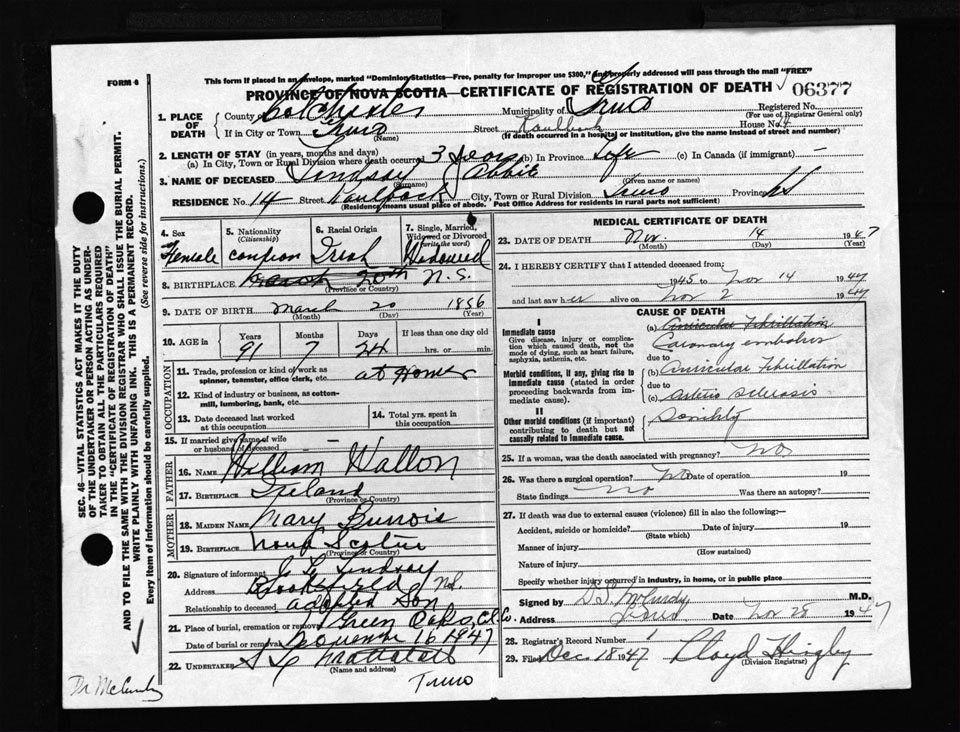 FORM 6
This form if placed in an envelope, marked "Dominion Statistics—Free, penalty for improper use $300," and properly addressed will pass through the mail "FREE"
PROVINCE OF NOVA SCOTIA—CERTIFICATE OF REGISTRATION OF DEATH
06377
1. PLACE OF DEATH
County Colchester
Municipality of Truro
Registered No.
(For use of Registrar General only)
If in City or Town Truro
(Name)
Street Kaulback
House No. 14
(If death occurred in a hospital or institution, give the name instead of street and number)
2. LENGTH OF STAY (in years, months and days)
(a) In City, Town or Rural Division where death occurred 3 years (b) In Province Life (c) In Canada (if immigrant) —
3. NAME OF DECEASED Lindsay Abbie
(Surname) (Given name or names)
RESIDENCE No. 14 Street Kaulback City, Town or Rural Division Truro Province NS
(Residence means usual place of abode. Post Office Address for residents in rural parts not sufficient)
4. Sex
Female
5. Nationality
(Citizenship)
6. Racial Origin
Irish
7. Single, Married, Widowed or Divorced
(write the word)
Widowed
8. BIRTHPLACE March 20th N.S.
(Province or Country)
9. DATE OF BIRTH March 20 1856
(Month) (Day) (Year)
10. AGE in
Years Months Days If less than one day old
91 7 24 hrs. or min.
OCCUPATION
11. Trade, profession or kind of work as spinner, teamster, office clerk, etc. at Home
12. Kind of industry or business, as cotton-mill, lumbering, bank, etc.
13. Date deceased last worked at this occupation
14. Total yrs. spent in this occupation
15. If married give name of wife or husband of deceased —
FATHER
16. NAME William Walton
17. BIRTHPLACE Ireland
(Province or Country)
MOTHER
18. MAIDEN NAME Mary
19. BIRTHPLACE Nova Scotia
(Province or Country)
20. Signature of informant Lindsay
Address Brookfield NS.
Relationship to deceased adopted Son
21. Place of burial, cremation or removal Green Oaks, Col. Co.
Date of burial or removal November 16 1947
22. UNDERTAKER
(Name and address)
Truro
MEDICAL CERTIFICATE OF DEATH
23. DATE OF DEATH Nov. 14 1947
(Month) (Day) (Year)
24. I HEREBY CERTIFY that I attended deceased from:
1945 to Nov 14 1947
and last saw her alive on Nov 2 1947
CAUSE OF DEATH
I
Immediate cause
Give disease, injury or complication which caused death, not the mode of dying, such as heart failure, asphyxia, asthenia, etc.
Morbid conditions, if any, giving rise to immediate cause (stated in order proceeding backwards from immediate cause).
II
Other morbid conditions (if important) contributing to death but not causally related to immediate cause.
(a) Auricular Fibrillation
Coronary embolus
due to
(b) Auricular Fibrillation
due to
(c) Arterio Sclerosis
Senility
25. If a woman, was the death associated with pregnancy? No
26. Was there a surgical operation? No Date of operation 19
State findings no Was there an autopsy?
27. If death was due to external causes (violence) fill in also the following:—
Accident, suicide or homicide? Date of injury 19
(State which)
Manner of injury
(How sustained)
Nature of injury
Specify whether injury occurred in industry, in home, or in public place
Signed by D S McCurdy M.D.
Address Truro Date Nov 28 1947
28. Registrar's Record Number 1
29. Filed Dec. 18 1947 Lloyd
(Division Registrar)
SEC. 46—VITAL STATISTICS ACT MAKES IT THE DUTY OF THE UNDERTAKER OR PERSON ACTING AS UNDERTAKER TO OBTAIN ALL THE PARTICULARS REQUIRED IN THE "CERTIFICATE OF REGISTRATION OF DEATH" AND TO FILE THE SAME WITH THE DIVISION REGISTRAR WHO SHALL ISSUE THE BURIAL PERMIT.
WRITE PLAINLY WITH UNFADING INK. THIS IS A PERMANENT RECORD.
Every item of Information should be carefully supplied. (See reverse side for instructions.)
Dr McCurdy